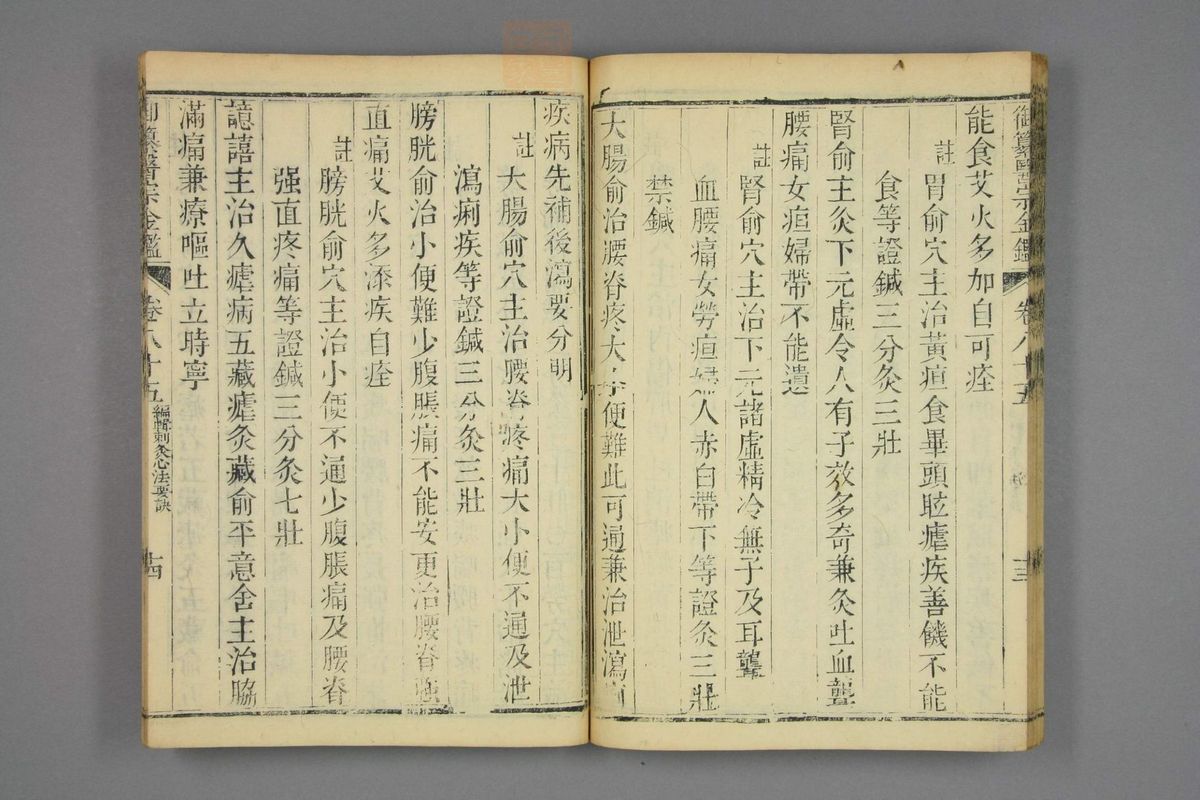 御纂醫宗金鑑 卷八十五 十三
能食艾火多加自可痊
註 胃俞穴主治黃疸食畢頭眩瘧疾善饑不能
食等證鍼三分灸三壯
腎俞主灸下元虛令人有子效多奇兼灸吐血聾
腰痛女疸婦帶不能遺
註 腎俞穴主治下元諸虛精冷無子及耳聾
血腰痛女勞疸婦人赤白帶下等證灸三壯
禁鍼
大腸俞治腰脊疼大小便難此可通兼治泄瀉痢
疾病先補後瀉要分明
註 大腸俞穴主治腰脊疼痛大小便不通及泄
瀉痢疾等證鍼三分灸三壯
膀胱俞治小便難少腹脹痛不能安更治腰脊強
直痛艾火多添疾自痊
註 膀胱俞穴主治小便不通少腹脹痛及腰脊
强直疼痛等證鍼三分灸七壯
譩譆主治久瘧病五藏瘧灸藏俞平意舍主治脇
滿痛兼療嘔吐立時寧
御纂醫宗金鑑 卷八十五 編輯刺灸心法要訣 十四